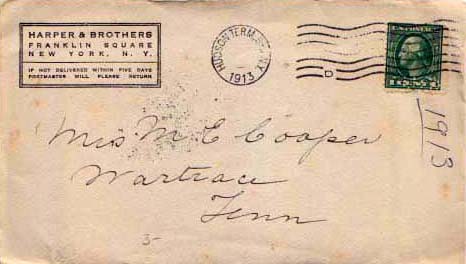 HARPER & BROTHERS
FRANKLIN SQUARE
NEW YORK, N. Y.
IF NOT DELIVERED WITHIN FIVE DAYS
POSTMASTER WILL PLEASE RETURN
HUDSON TERM. STA. N.Y.
1913
D
1913
Miss M E Cooper
Wartrace
Tenn
5-